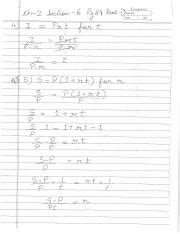 Ch-2 Section-6 Pg 69
4) I = Prt for t
I/P·r = Prt/P·r
I/P·r = t
5) S = P(1+rt) for r
S/P = P(1+rt)/P
S/P = 1+rt
S/P = 1+rt
S-P/P = rt
S-P/P · 1/t = rt · 1/t
S-P/Pt = r